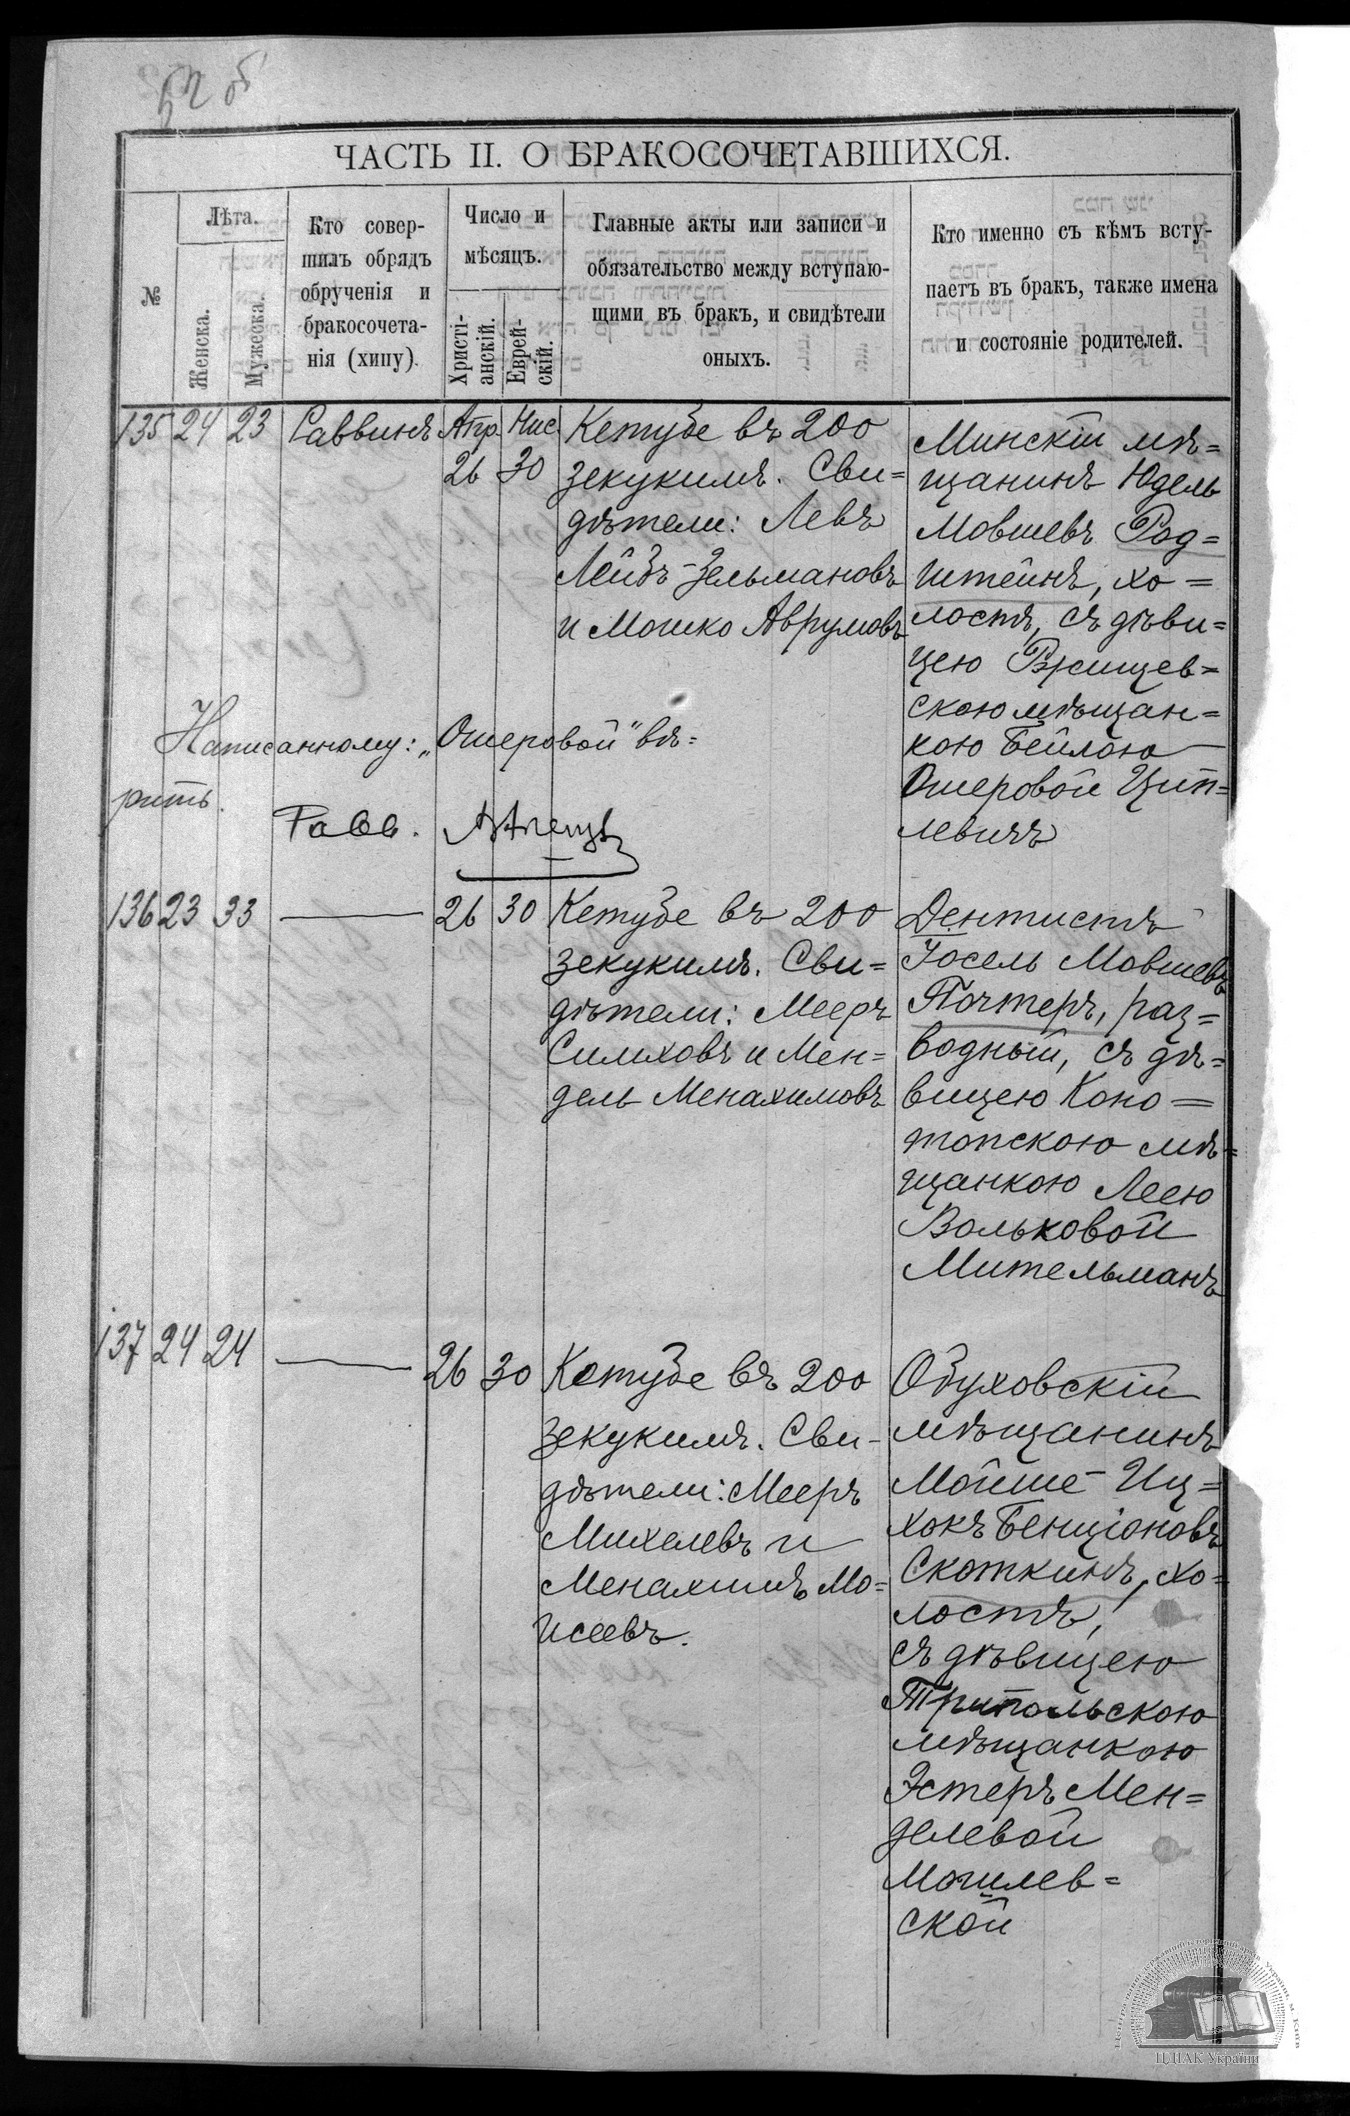 52 об
ЧАСТЬ II. О БРАКОСОЧЕТАВШИХСЯ.
№
Лѣта.
Женска.
Мужеска.
Кто совер-
шилъ обрядъ
обрученія и
бракосочета-
нія (хипу).
Число и
мѣсяцъ.
Христі-
анскій.
Еврей-
скій.
Главные акты или записи и
обязательство между вступаю-
щими въ бракъ, и свидѣтели
оныхъ.
Кто именно съ кѣмъ всту-
паетъ въ бракъ, также имена
и состояніе родителей.
135 24 23 Раввинъ Апр. Нис.
26 30
Кетубе въ 200
зекукимъ. Сви=
дѣтели: Левъ
Лейбъ-Зельмановъ
и Мошко Аврумовъ
Минскій мѣ=
щанинъ Юдель
Мовшевъ Род=
штейнъ, хо=
лостъ, съ дѣви=
цею Ржищев=
скою мѣщан=
кою Бейлою
Ошеровой Цип=
левичъ
Написанному: „Ошеровой" вѣ=
рить.
Равв.
136 23 33 — 26 30
Кетубе въ 200
зекукимъ. Сви=
дѣтели: Мееръ
Симховъ и Мен=
дель Менахимовъ
Дентистъ
Іосель Мовшевъ
Почтеръ, раз=
водный, съ дѣ=
вицею Коно=
топскою мѣ=
щанкою Леею
Вольковой
Мительманъ
137 24 24 — 26 30
Кетубе въ 200
зекукимъ. Сви-
дѣтели: Мееръ
Михелевъ и
Менахимъ Мо=
исеевъ.
Обуховскій
мѣщанинъ
Мойше-Иц=
хокъ Бенціоновъ
Скоткинъ, хо=
лостъ,
съ дѣвицею
Трипольскою
мѣщанкою
Эстеръ Мен=
делевой
Могилев=
ской
ЦДІАК України